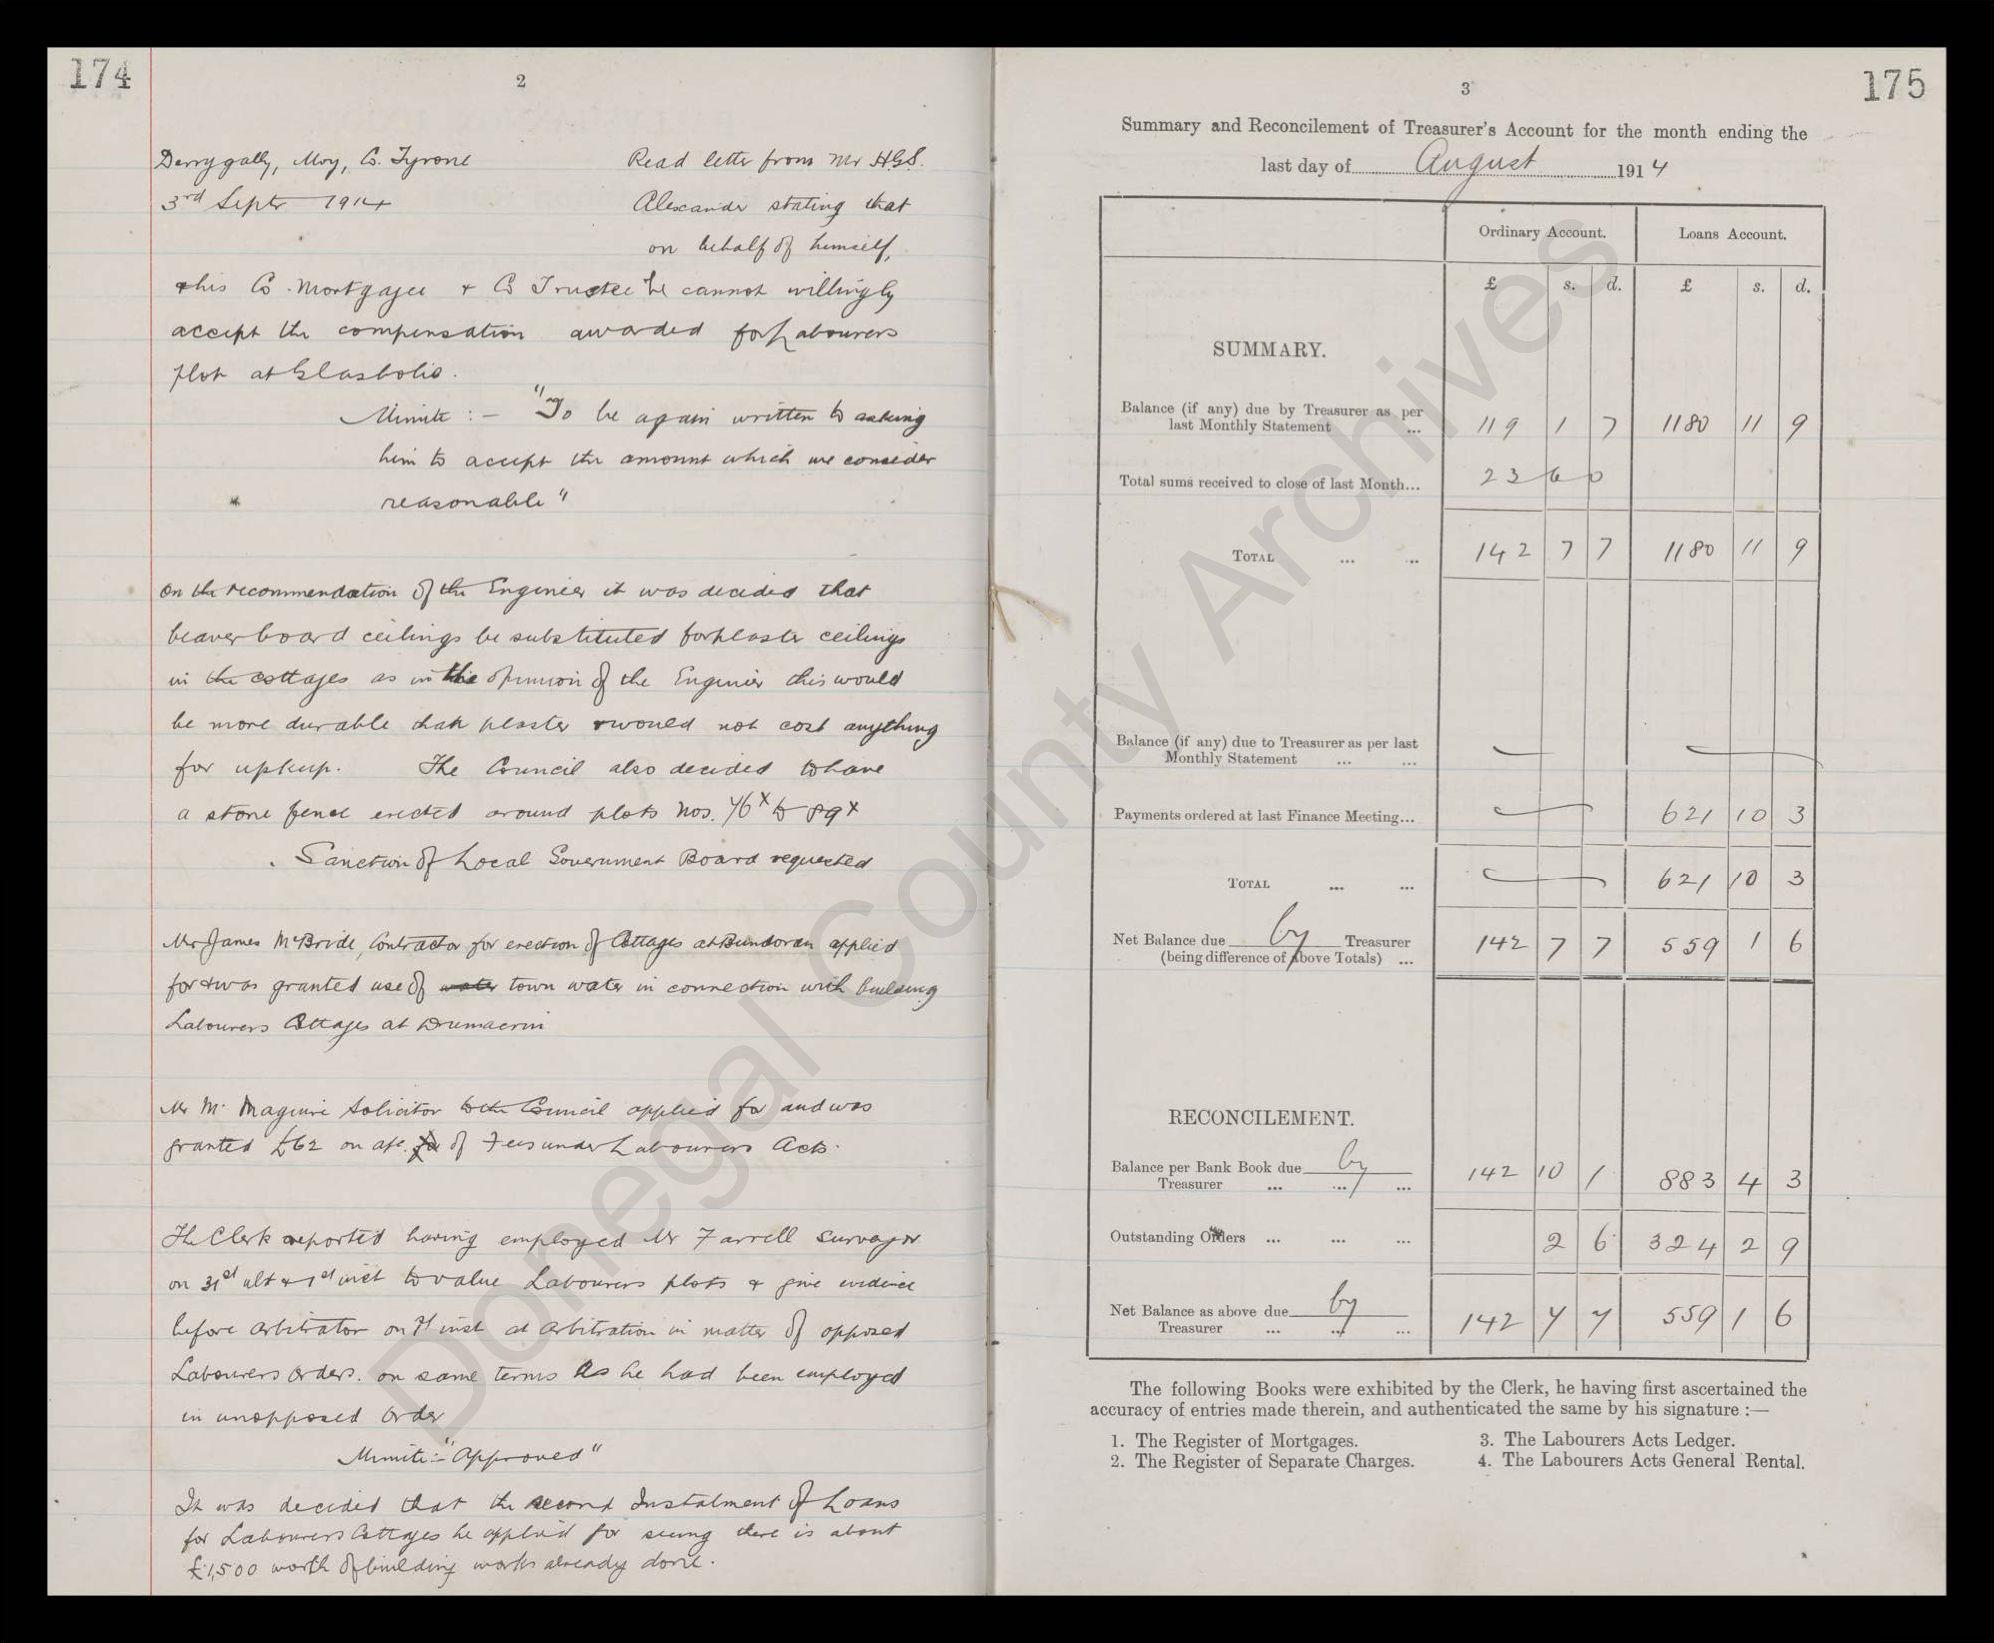 174
2
Derrygally, Moy, Co. Tyrone
3rd Septr 1914
Read letter from Mr H.G.S.
Alexander stating that
on behalf of himself,
& his Co. Mortgagee & Co Trustee he cannot willingly
accept the compensation awarded for Labourers
plot at Glasbolie.
Minute :- "To be again written to asking
him to accept the amount which we consider
reasonable"
On the recommendation of the Engineer it was decided that
beaver board ceilings be substituted for plaster ceilings
in the cottages as in the opinion of the Engineer this would
be more durable than plaster & would not cost anything
for upkeep. The Council also decided to have
a stone fence erected around plots Nos. 76x to 89x
Sanction of Local Government Board requested
Mr James McBride, Contractor for erection of Cottages at Bundoran applied
for & was granted use of water town water in connection with building
Labourers Cottages at Drumacrin
Mr M. Maguire Solicitor to the Council applied for and was
granted £62 on a/c of Fees under Labourers Acts.
The Clerk reported having employed Mr Farrell Surveyor
on 31st ult & 1st inst to value Labourers plots & give evidence
before Arbitrator on 1st inst at Arbitration in matter of opposed
Labourers Orders. on same terms as he had been employed
in unopposed Order
Minute:- "Approved"
It was decided that the second Instalment of Loans
for Labourers Cottages be applied for seeing there is about
£1,500 worth of building works already done.
175
3
Summary and Reconcilement of Treasurer's Account for the month ending the
last day of August 1914
Ordinary Account. Loans Account.
£ s. d. £ s. d.
SUMMARY.
Balance (if any) due by Treasurer as per
last Monthly Statement ... 119 1 7 1180 11 9
Total sums received to close of last Month... 23 6 0
TOTAL ... ... 142 7 7 1180 11 9
Balance (if any) due to Treasurer as per last
Monthly Statement ... ...
Payments ordered at last Finance Meeting... 621 10 3
TOTAL ... ... 621 10 3
Net Balance due by Treasurer
(being difference of above Totals) ... 142 7 7 559 1 6
RECONCILEMENT.
Balance per Bank Book due by
Treasurer ... ... ... 142 10 1 883 4 3
Outstanding Orders ... ... ... 2 6 324 2 9
Net Balance as above due by
Treasurer ... ... ... 142 7 7 559 1 6
The following Books were exhibited by the Clerk, he having first ascertained the
accuracy of entries made therein, and authenticated the same by his signature :—
1. The Register of Mortgages. 3. The Labourers Acts Ledger.
2. The Register of Separate Charges. 4. The Labourers Acts General Rental.
Donegal County Archives